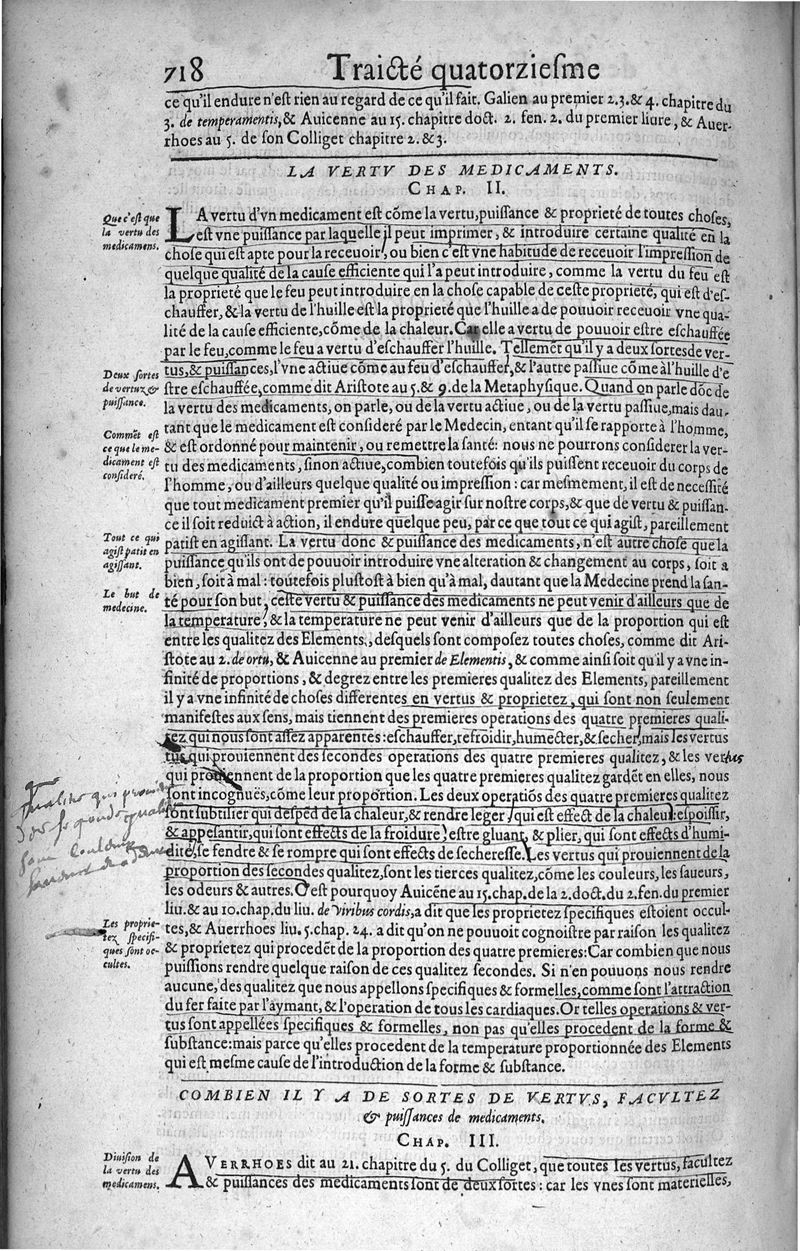 718 Traicté quatorziesme
ce qu'il endure n'est rien au regard de ce qu'il fait. Galien au premier 2.3.& 4. chapitre du
3. de temperamentis,& Auicenne au 15. chapitre doct. 2. fen. 2. du premier liure, & Auer-
rhoes au 5. de son Colliget chapitre 2. & 3.
LA VERTV DES MEDICAMENTS.
CHAP. II.
Que c'est que
la vertu des
medicamens.
LA vertu d'vn medicament est cõme la vertu,puissance & proprieté de toutes choses,
est vne puissance par laquelle il peut imprimer, & introduire certaine qualité en la
chose qui est apte pour la receuoir, ou bien c'est vne habitude de receuoir l'impression de
quelque qualité de la cause efficiente qui l'a peut introduire, comme la vertu du feu est
la proprieté que le feu peut introduire en la chose capable de ceste proprieté, qui est d'es-
chauffer, & la vertu de l'huille est la proprieté que l'huille a de pouuoir receuoir vne qua-
lité de la cause efficiente,cõme de la chaleur. Car elle a vertu de pouuoir estre eschauffée
par le feu,comme le feu a vertu d'eschauffer l'huille. Tellemẽt qu'il y a deux sortes de ver-
tus,& puissances,l'vne actiue cõme au feu d'eschauffer,& l'autre passiue cõme à l'huille d'e
stre eschauffée,comme dit Aristote au 5.& 9.de la Metaphysique. Quand on parle dõc de
la vertu des medicaments, on parle, ou de la vertu actiue, ou de la vertu passiue,mais dau-
tant que le medicament est consideré par le Medecin, entant qu'il se rapporte à l'homme,
& est ordonné pour maintenir, ou remettre la santé: nous ne pourrons considerer la ver-
tu des medicaments, sinon actiue,combien toutefois qu'ils puissent receuoir du corps de
l'homme, ou d'ailleurs quelque qualité ou impression : car mesmement, il est de necessité
que tout medicament premier qu'il puisse agir sur nostre corps,& que de vertu & puissan-
ce il soit reduict à action, il endure quelque peu, par ce que tout ce qui agist, pareillement
patist en agissant. La vertu donc & puissance des medicaments, n'est autre chose que la
puissance qu'ils ont de pouuoir introduire vne alteration & changement au corps, soit a
bien, soit à mal : toutefois plustost à bien qu'à mal, dautant que la Medecine prend la san-
té pour son but, ceste vertu & puissance des medicaments ne peut venir d'ailleurs que de
la temperature, & la temperature ne peut venir d'ailleurs que de la proportion qui est
entre les qualitez des Elements, desquels sont composez toutes choses, comme dit Ari-
stote au 2. de ortu, & Auicenne au premier de Elementis, & comme ainsi soit qu'il y a vne in-
finité de proportions, & degrez entre les premieres qualitez des Elements, pareillement
il y a vne infinité de choses differentes en vertus & proprietez, qui sont non seulement
manifestes aux sens, mais tiennent des premieres operations des quatre premieres quali-
tez qui nous sont assez apparentes:eschauffer,refroidir,humecter,& secher,mais les vertus
qui prouiennent des secondes operations des quatre premieres qualitez, & les vertus
qui prouiennent de la proportion que les quatre premieres qualitez gardẽt en elles, nous
sont incognuës, cõme leur proportion. Les deux operatiõs des quatre premieres qualitez
sont subtilier qui despẽd de la chaleur,& rendre leger, qui est effect de la chaleur:espoissir,
& appesantir,qui sont effects de la froidure, estre gluant, & plier, qui sont effects d'humi-
dité,se fendre & se rompre qui sont effects de secheresse. Les vertus qui prouiennent de la
proportion des secondes qualitez,sont les tierces qualitez,cõme les couleurs, les saueurs,
les odeurs & autres. C'est pourquoy Auicẽne au 15.chap.de la 2.doct.du 2.fen.du premier
liu.& au 10.chap.du liu. de viribus cordis,a dit que les proprietez specifiques estoient occul-
tes,& Auerrhoes liu. 5.chap. 24. a dit qu'on ne pouuoit cognoistre par raison les qualitez
& proprietez qui procedẽt de la proportion des quatre premieres:Car combien que nous
puissions rendre quelque raison de ces qualitez secondes. Si n'en pouuons nous rendre
aucune,des qualitez que nous appellons specifiques & formelles,comme sont l'attraction
du fer faite par l'aymant, & l'operation de tous les cardiaques.Or telles operations & ver-
tus sont appellées specifiques & formelles, non pas qu'elles procedent de la forme &
substance:mais parce qu'elles procedent de la temperature proportionnée des Elements
qui est mesme cause de l'introduction de la forme & substance.
Deux sortes
de vertuz &
puissance.
Commẽt est
ce que le me-
dicament est
consideré.
Tout ce qui
agist patit en
agissant.
Le but de
medecine.
Les proprie-
tez specifi-
ques sont oc-
cultes.
COMBIEN IL Y A DE SORTES DE VERTVS, FACVLTEZ
& puissances de medicaments.
CHAP. III.
Diuision de
la vertu des
medicamens.
AVERRHOES dit au 21. chapitre du 5. du Colliget, que toutes les vertus, facultez
& puissances des medicaments sont de deux sortes : car les vnes sont materielles,